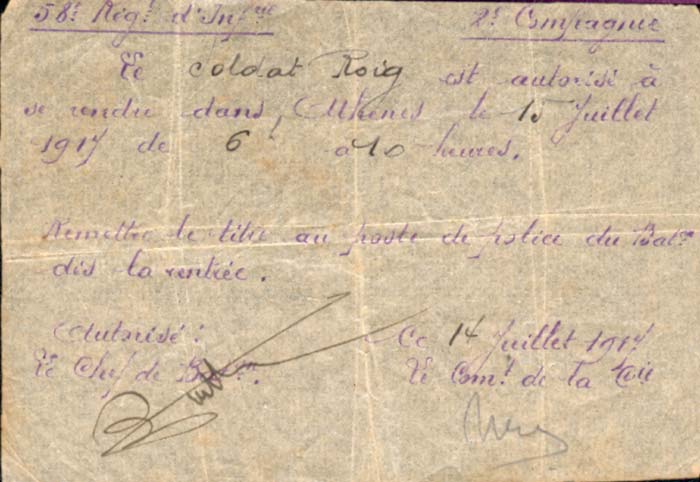 58e Régt d'Infrie 2e Compagnie
Le soldat Roig est autorisé à
se rendre dans, Athènes le 15 Juillet
1917 de 6 à 10 heures.
Remettre le titre au poste de police du Baton
dès la rentrée.
Autorisé : Ce 14 Juillet 1917
Le Chef de Baton. Le Comt de la Cie